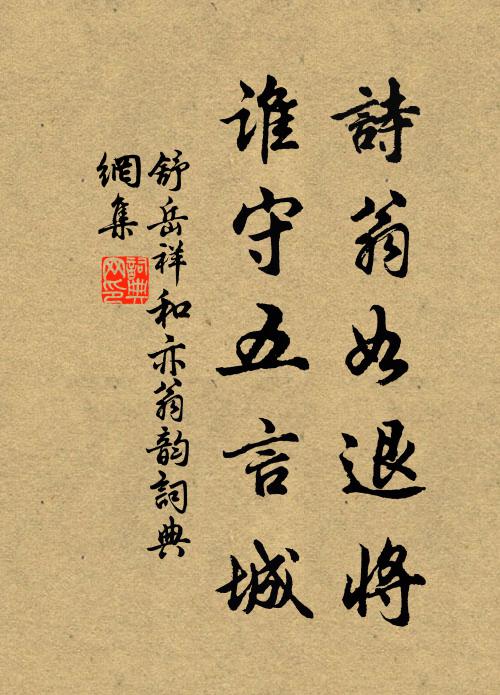 詩翁如退將
誰守五言城
舒岳祥和亦翁韵詞典
網集
詞典
网印